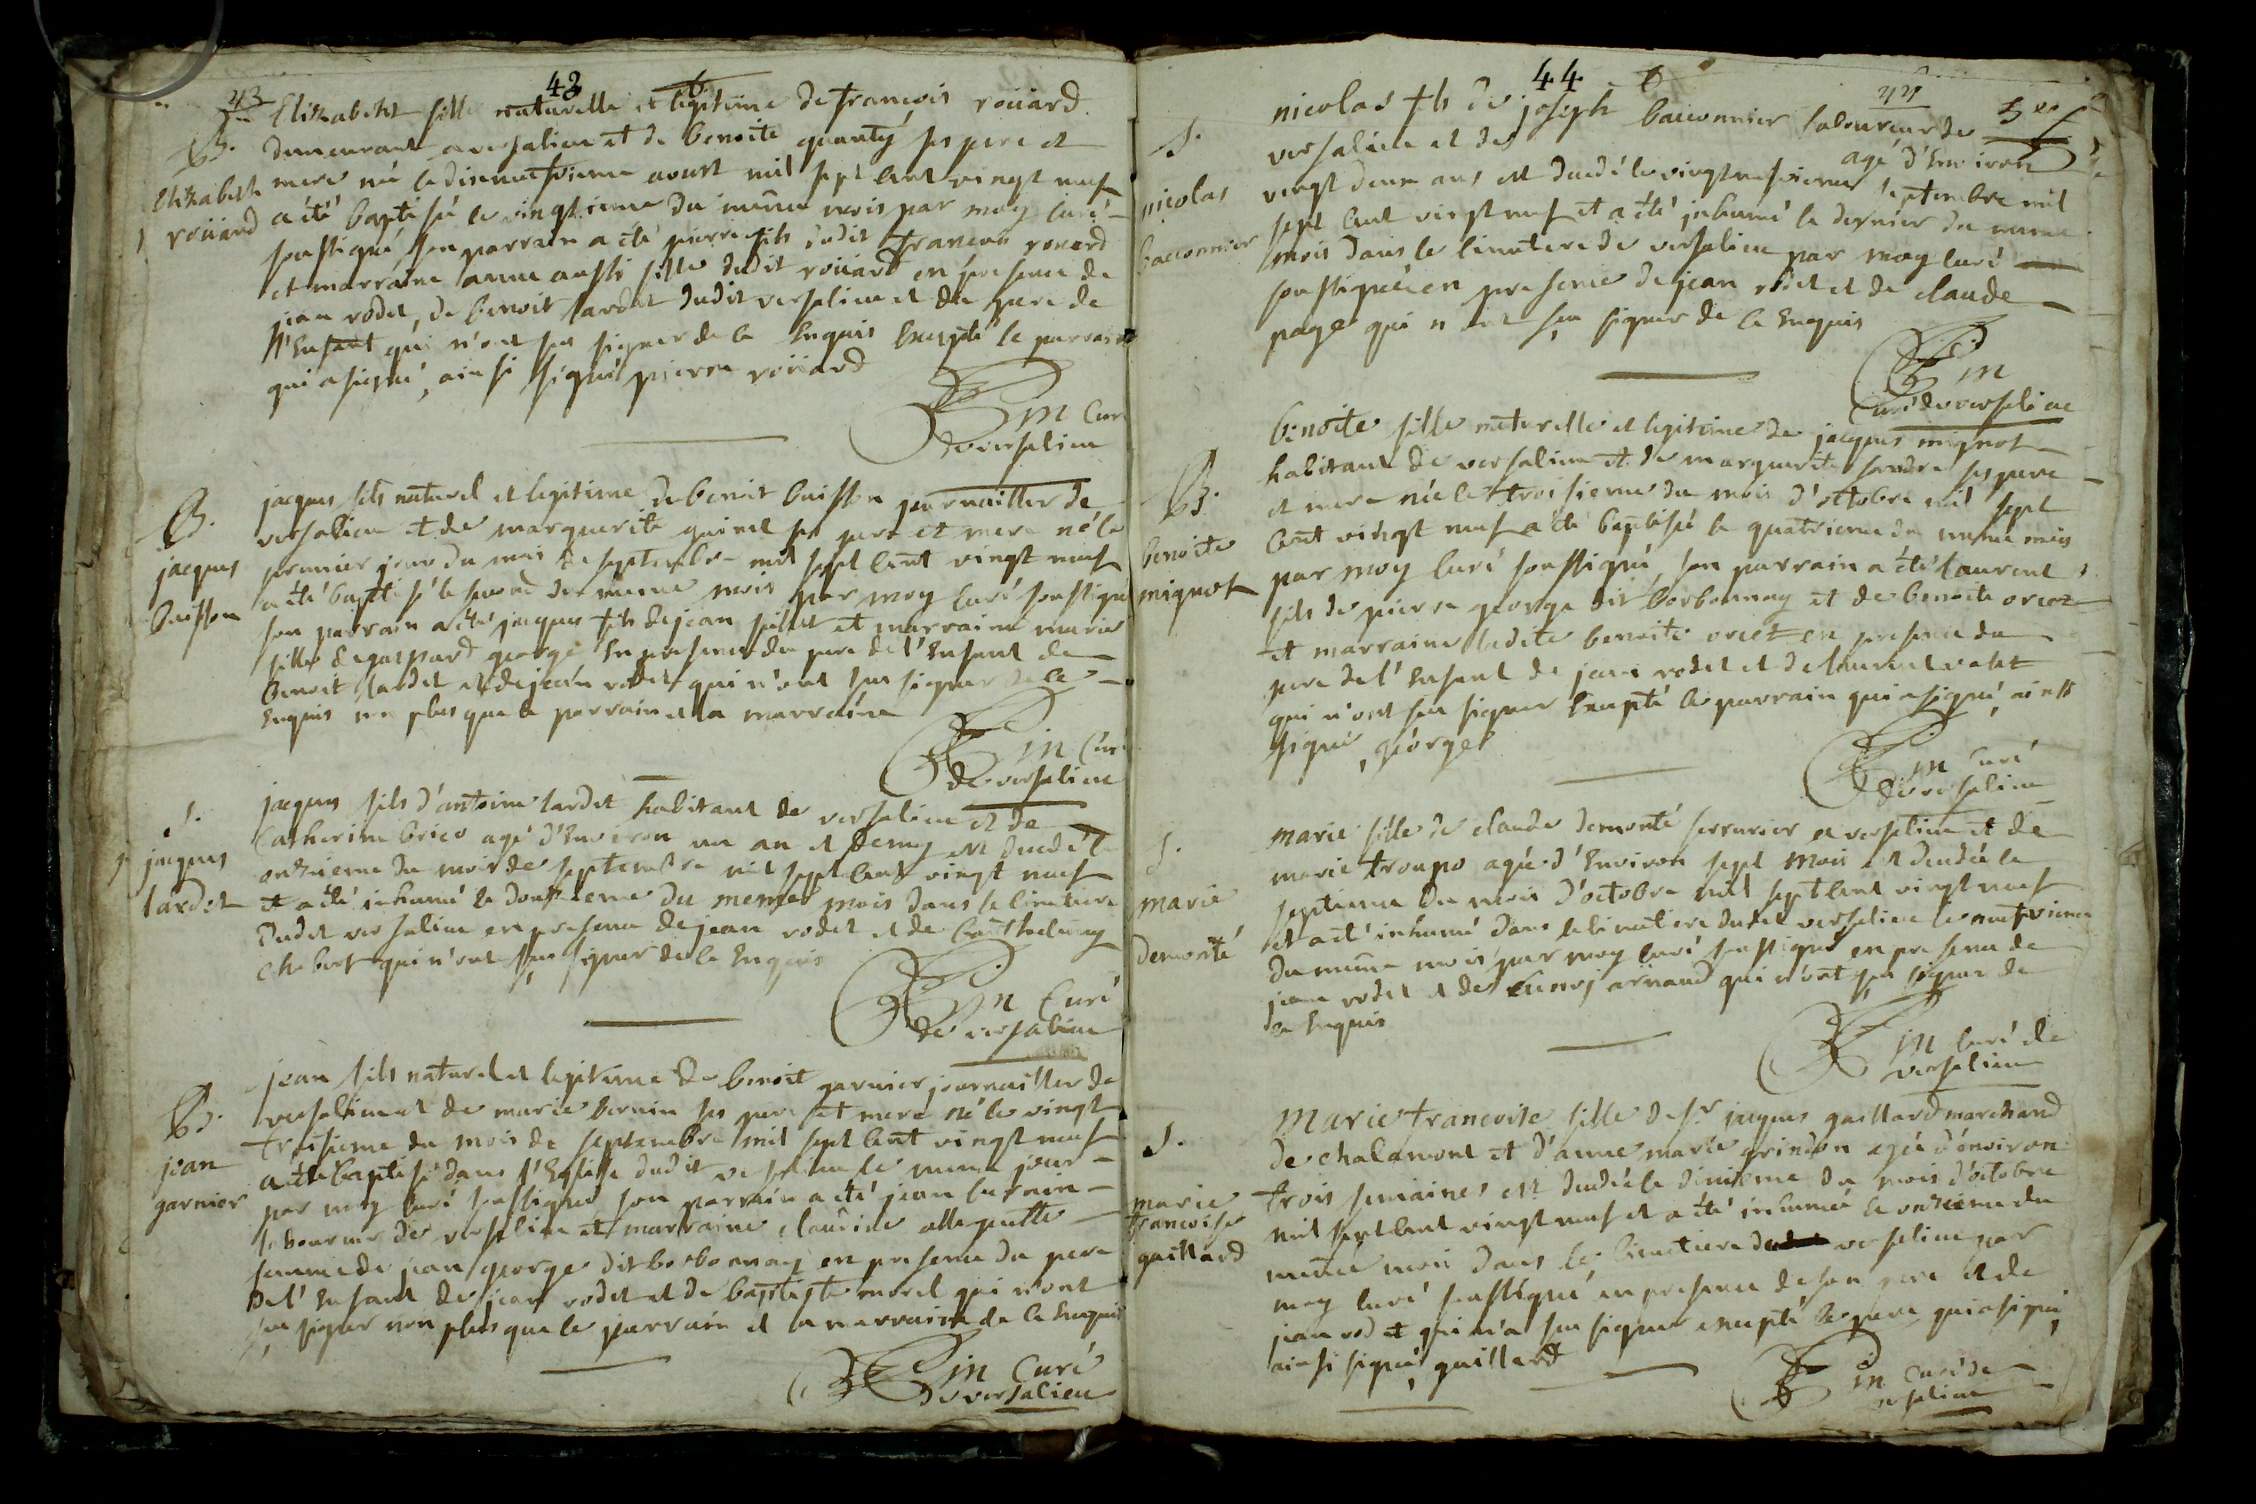 43
43 6
Elizabeth fille naturelle et legitime de francois roüard
B.
demeurant a versalieu et de benoite quanty ses pere et
Elizabeth
roüard
mere née le dixneufvieme aoust mil sept cent vingt neuf
a été baptisée le vingtieme du même mois par moy curé
soussigné, son parrain a été pierre fils dudit francois roüard
et marraine anne aussi fille dudit roüard en presence de
jean rodet, de benoit lardet dudit versalieu et du pere de
l'Enfant qui n'ont sçu signer de ce Enquis Excepté le parrain
qui a signé, ainsi signé pierre roüard
in Curé
de versalieu
B.
jacques
buisson
jacques fils naturel et legitime de benoit buisson journaillier de
versalieu et de marguerite guinet ses pere et mere né le
premier jour du mois de septembre mil sept cent vingt neuf
a été baptisé le second du même mois par moy curé soussigné
son parrain a été jacques fils de jean fillet et marraine marie
fille de gaspard george En presence du pere de l'Enfant de
benoit lardet et de jean rodet qui n'ont sçu signer de ce
Enquis non plus que le parrain et la marraine
in Curé
de versalieu
S.
jacques
lardet
jacques fils d'antoine lardet habitant de versalieu et de
Catherine brico agé d'Environ un an et demy est decedé le
onzieme du mois de septembre mil sept cent vingt neuf
et a été inhumé le douzieme du meme mois dans le cimetiere
dudit versalieu en presence de jean rodet et de barthelemy
chabert qui n'ont sçu signer de ce Enquis
in Curé
de versalieu
B.
jean
garnier
jean fils naturel et legitime de benoit garnier journaillier de
versalieu et de marie bernin ses pere et mere né le vingt
troisieme du mois de septembre mil sept cent vingt neuf
a été baptisé dans l'Eglise dudit versalieu le meme jour
par moy curé soussigné son parrain a été jean bernin
laboureur de versalieu et marraine claudine
femme de jean george dit borbonnay en presence du pere
de l'Enfant de jean rodet et de baptiste morel qui n'ont
sçu signer non plus que le parrain et la marraine de ce Enquis
in Curé
de versalieu
44
6
44
S.
nicolas
bacconnier
nicolas fils de joseph bacconnier laboureur de
versalieu et de agé d'Environ
vingt deux ans est decedé le vingtneufvieme septembre mil
sept cent vingt neuf et a été inhumé le dernier du meme
mois dans le cimetiere de versalieu par moy curé
soussigné en presence de jean rodet et de claude
page qui n'ont sçu signer de ce Enquis
in
Curé de versalieu
B.
benoite
mignot
benoite fille naturelle et legitime de jacques mignot
habitant de versalieu et de marguerite ses pere
et mere née le troisieme du mois d'octobre mil sept
cent vingt neuf a été baptisée le quatrieme du meme mois
par moy curé soussigné, son parrain a été laurent
fils de pierre george dit borbonnay et de benoite orcet
et marraine ladite benoite orcet en presence du
pere de l'Enfant de jean rodet et de laurent
qui n'ont sçu signer Excepté le parrain qui a signé, ainsi
signé, george
in Curé
de versalieu
S.
marie
demonté
marie fille de claude demonté serrurier a versalieu et de
marie troupo agée d'Environ sept mois est decedée le
septieme du mois d'octobre mil sept cent vingt neuf
et a été inhumé dans le cimetiere dudit versalieu le neufvieme
du meme mois par moy curé soussigné en presence de
jean rodet et de arnaud qui n'ont sçu signer de
ce Enquis
in Curé de
versalieu
S.
marie
francoise
gaillard
Marie francoise fille de sr jacques gaillard marchand
de chalamont et d'anne marie grindon agée d'environ
trois semaines est decedée le dixieme du mois d'octobre
mil sept cent vingt neuf et a été inhumée le onzieme du
meme mois dans le cimetiere versalieu par
moy curé soussigné en presence de son pere et de
jean rodet qui n'a sçu signer excepté le pere qui a signé
ainsi signé, gaillard
in Curé de
versalieu